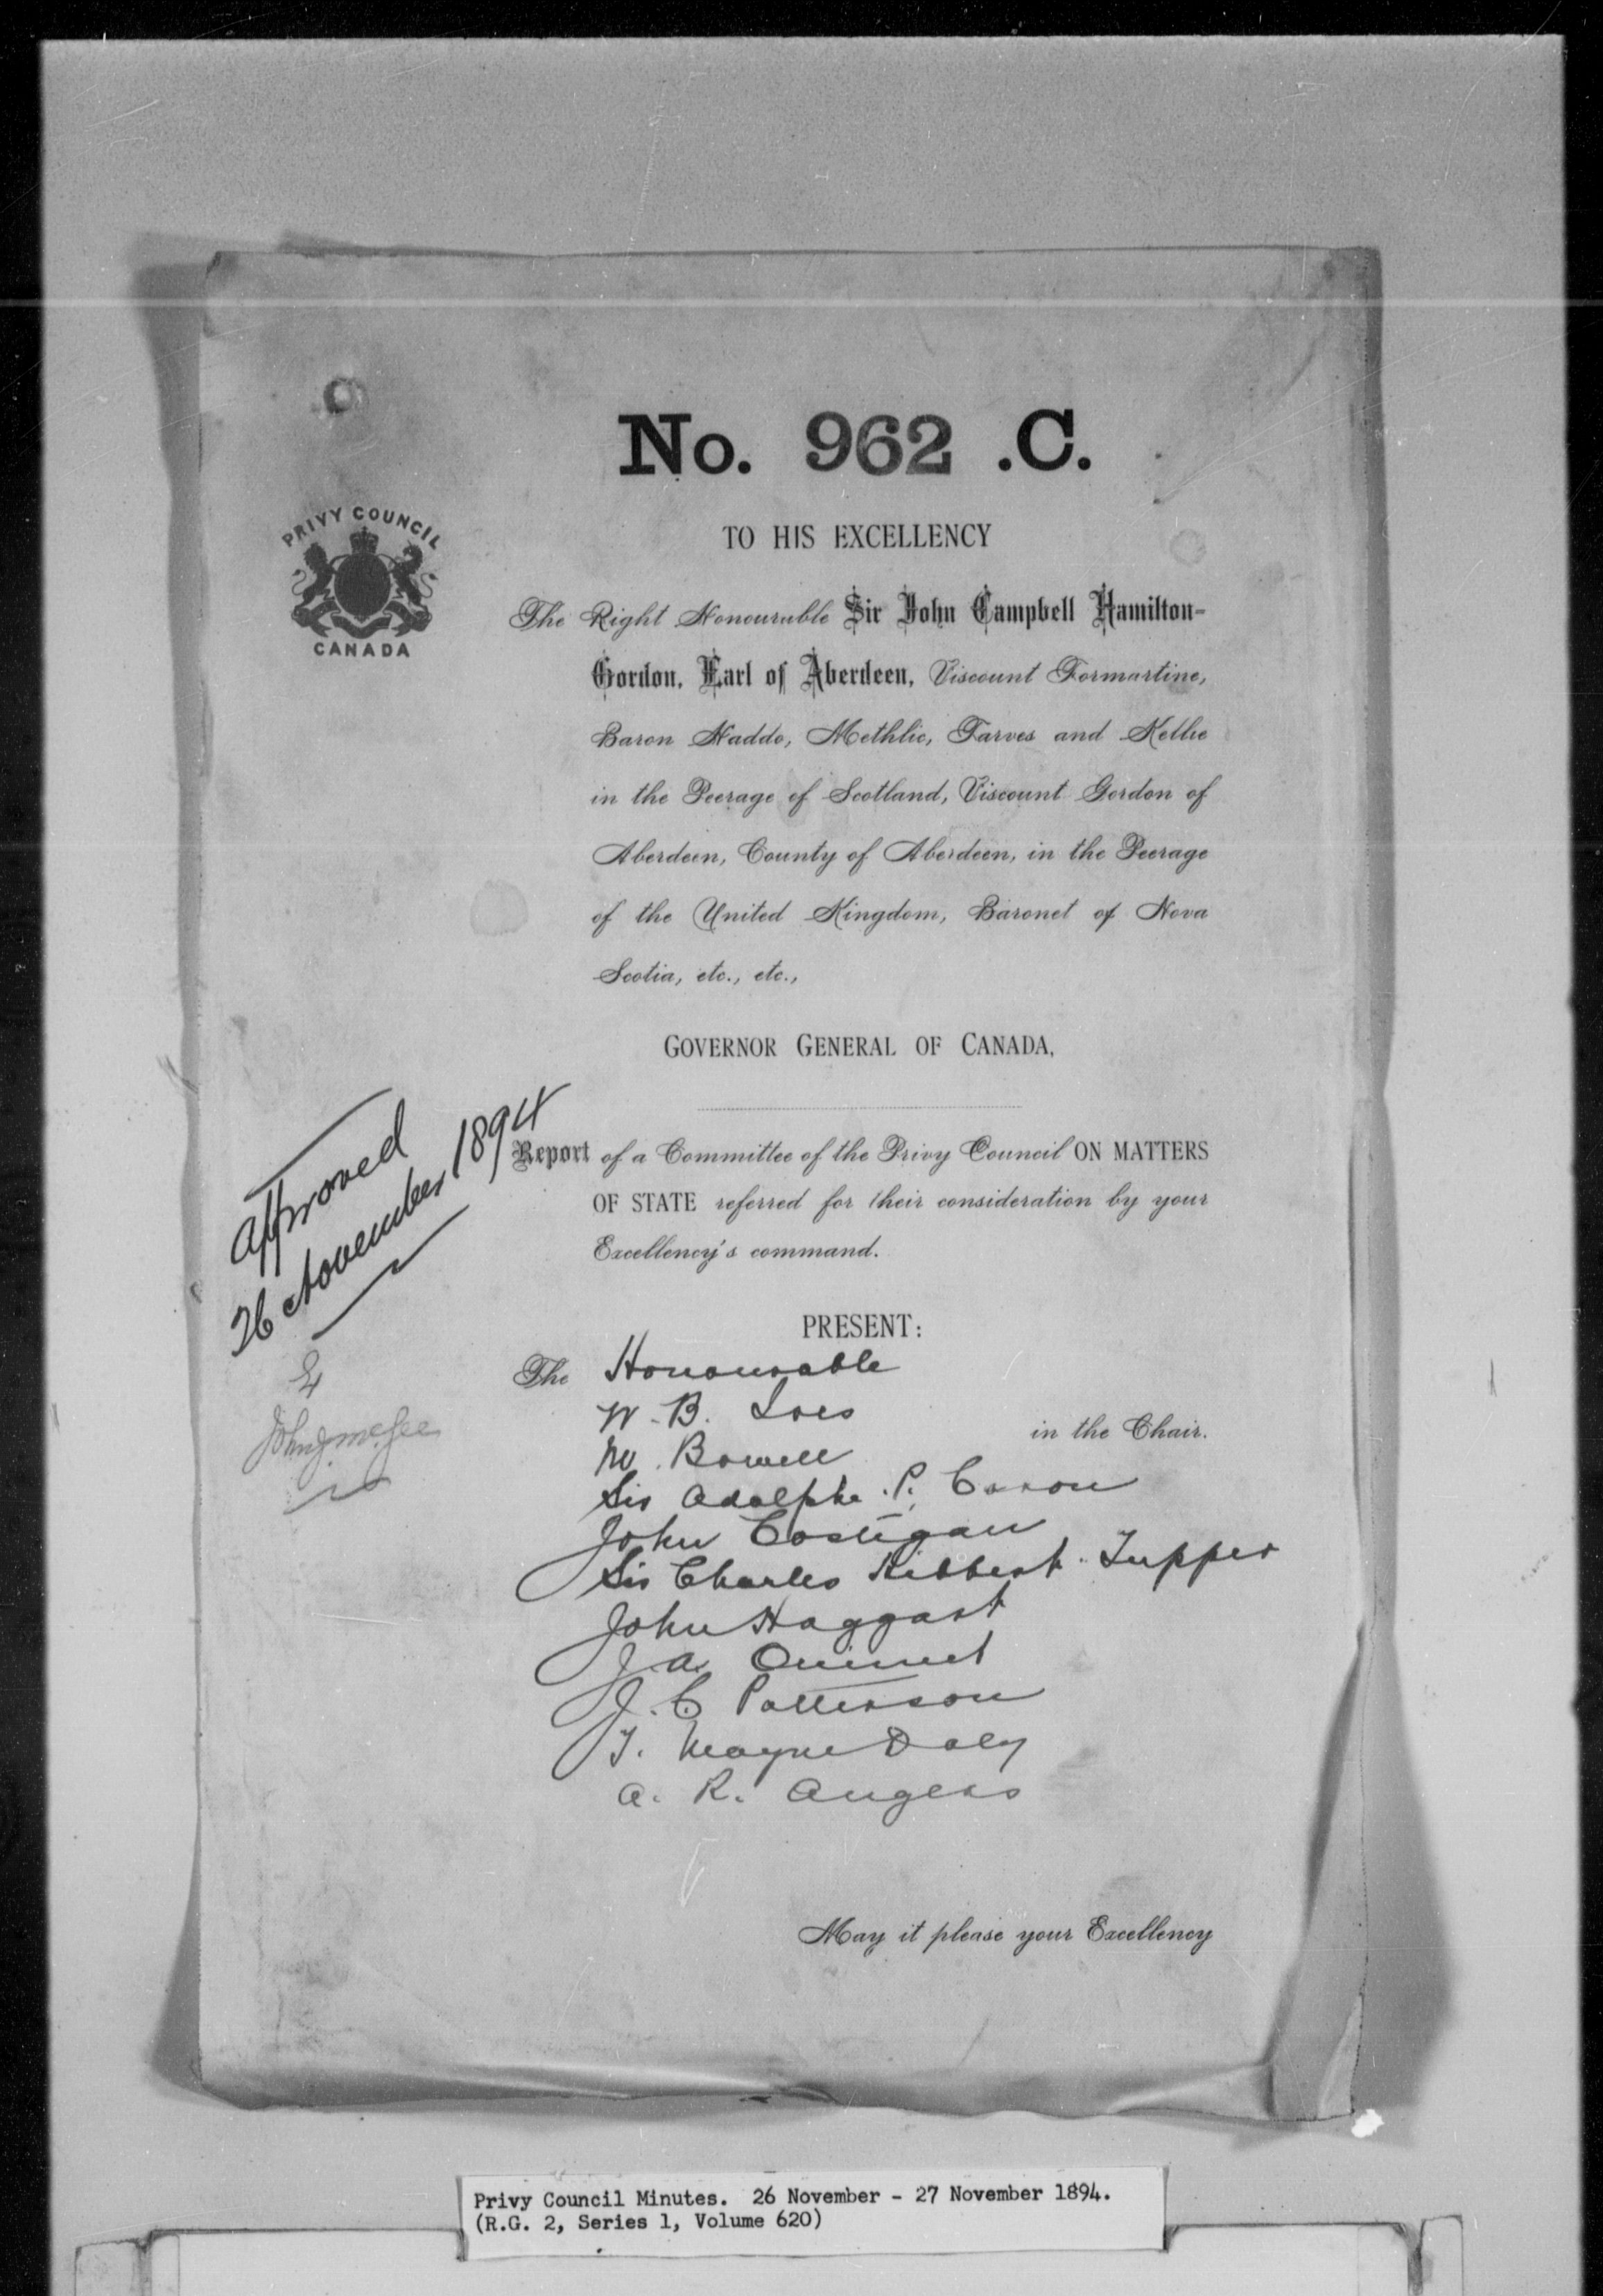 No. 962 .C.
PRIVY COUNCIL
CANADA
TO HIS EXCELLENCY
The Right Honourable Sir John Campbell Hamilton-
Gordon, Earl of Aberdeen, Viscount Formartine,
Baron Haddo, Methlic, Tarves and Kellie
in the Peerage of Scotland, Viscount Gordon of
Aberdeen, County of Aberdeen, in the Peerage
of the United Kingdom, Baronet of Nova
Scotia, etc., etc.,
GOVERNOR GENERAL OF CANADA,
Approved
26 November 1894
Report of a Committee of the Privy Council ON MATTERS
OF STATE referred for their consideration by your
Excellency's command.
PRESENT:
The Honourable
W. B. Ives
in the Chair.
M. Bowell
Sir Adolphe P. Caron
John Costigan
Sir Charles Hibbert Tupper
John Haggart
J. A. Ouimet
J. C. Patterson
T. Mayne Daly
A. R. Angers
John J. McGee
May it please your Excellency
Privy Council Minutes. 26 November - 27 November 1894.
(R.G. 2, Series 1, Volume 620)